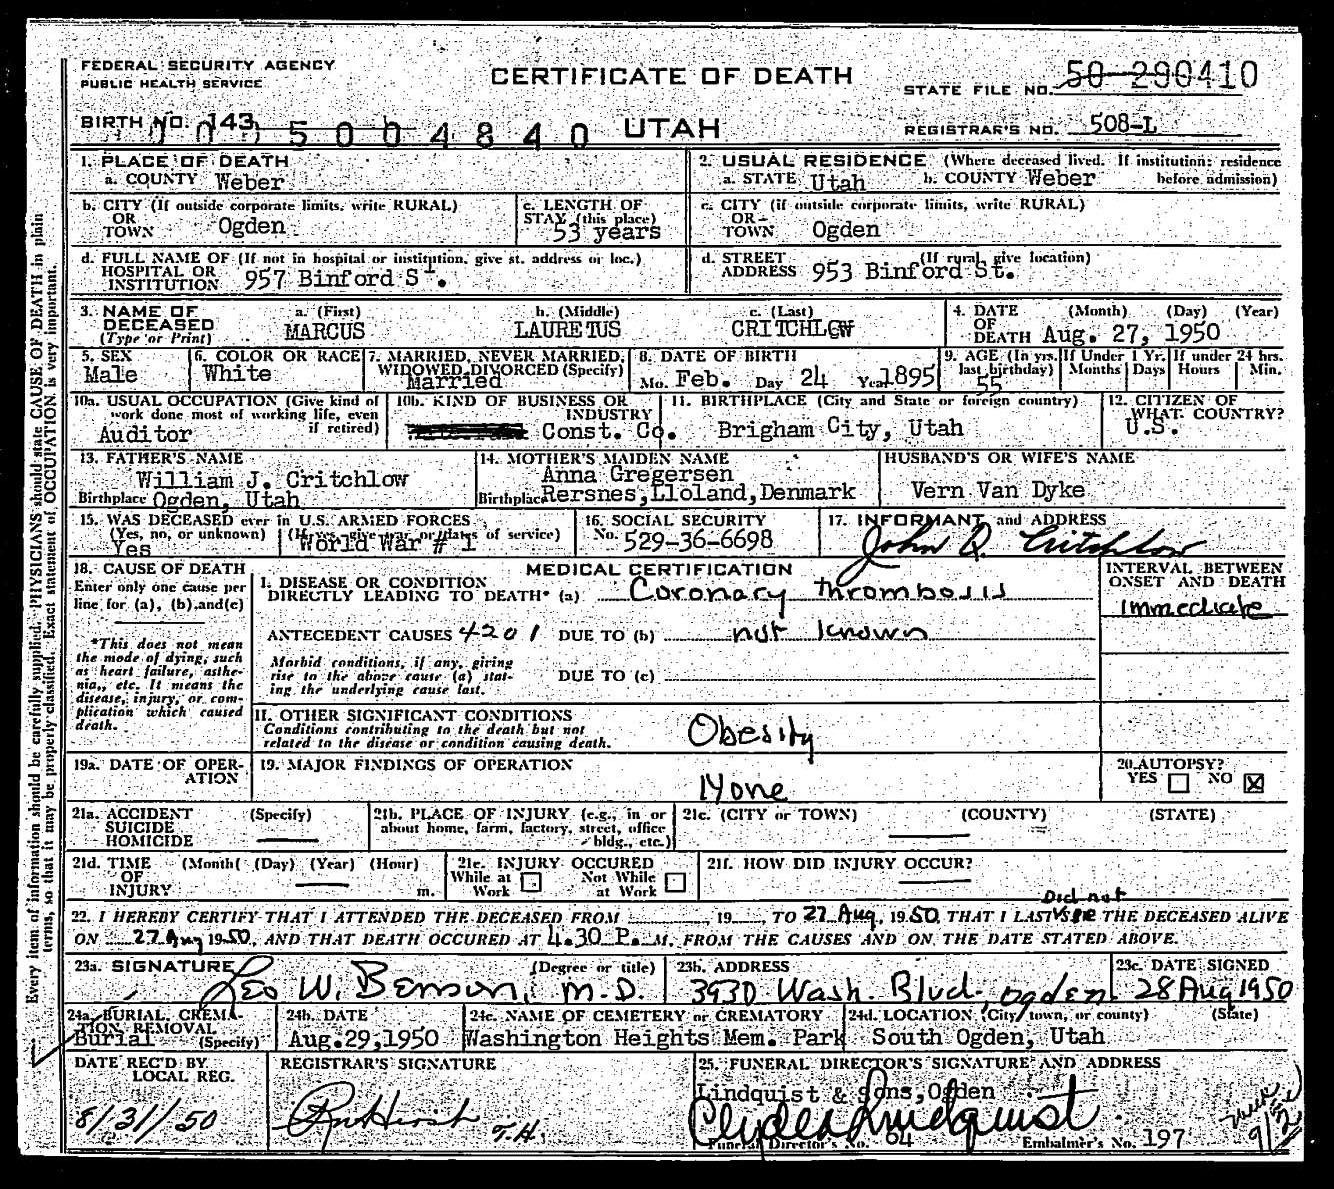 FEDERAL SECURITY AGENCY
PUBLIC HEALTH SERVICE
CERTIFICATE OF DEATH
STATE FILE NO. 50-290410
BIRTH NO. 143
005004840
UTAH
REGISTRAR'S NO. 508-L
1. PLACE OF DEATH
a. COUNTY Weber
2. USUAL RESIDENCE (Where deceased lived. If institution: residence before admission)
a. STATE Utah b. COUNTY Weber
b. CITY (If outside corporate limits, write RURAL)
OR
TOWN Ogden
c. LENGTH OF
STAY (this place)
53 years
c. CITY (if outside corporate limits, write RURAL)
OR-
TOWN Ogden
d. FULL NAME OF (If not in hospital or institution, give st. address or loc.)
HOSPITAL OR
INSTITUTION 957 Binford St.
d. STREET (If rural, give location)
ADDRESS 953 Binford St.
3. NAME OF DECEASED (Type or Print)
a. (First) b. (Middle) c. (Last)
MARCUS LAURETUS CRITCHLOW
4. DATE OF DEATH (Month) (Day) (Year)
Aug. 27, 1950
5. SEX
Male
6. COLOR OR RACE
White
7. MARRIED, NEVER MARRIED,
WIDOWED, DIVORCED (Specify)
Married
8. DATE OF BIRTH
Mo. Feb. Day 24 Year 1895
9. AGE (In yrs. last birthday)
55
If Under 1 Yr.
Months Days
If under 24 hrs.
Hours Min.
10a. USUAL OCCUPATION (Give kind of work done most of working life, even if retired)
Auditor
10b. KIND OF BUSINESS OR INDUSTRY
Const. Co.
11. BIRTHPLACE (City and State or foreign country)
Brigham City, Utah
12. CITIZEN OF WHAT COUNTRY?
U.S.
13. FATHER'S NAME
William J. Critchlow
Birthplace Ogden, Utah
14. MOTHER'S MAIDEN NAME
Anna Gregersen
Birthplace Rersnes, Lloland, Denmark
HUSBAND'S OR WIFE'S NAME
Vern Van Dyke
15. WAS DECEASED ever in U.S. ARMED FORCES
(Yes, no, or unknown) (If yes, give war or dates of service)
Yes World War # 1
16. SOCIAL SECURITY
No. 529-36-6698
17. INFORMANT and ADDRESS
John Q. Critchlow
18. CAUSE OF DEATH
Enter only one cause per line for (a), (b), and (c)
*This does not mean the mode of dying, such as heart failure, asthenia, etc. It means the disease, injury, or complication which caused death.
MEDICAL CERTIFICATION
INTERVAL BETWEEN ONSET AND DEATH
I. DISEASE OR CONDITION
DIRECTLY LEADING TO DEATH* (a) Coronary thrombosis
immediate
ANTECEDENT CAUSES 4201 DUE TO (b) not known
Morbid conditions, if any, giving rise to the above cause (a) stating the underlying cause last.
DUE TO (c)
II. OTHER SIGNIFICANT CONDITIONS
Conditions contributing to the death but not related to the disease or condition causing death.
Obesity
19a. DATE OF OPERATION
19. MAJOR FINDINGS OF OPERATION
None
20. AUTOPSY?
YES NO
21a. ACCIDENT (Specify)
SUICIDE
HOMICIDE
21b. PLACE OF INJURY (e.g., in or about home, farm, factory, street, office bldg., etc.)
21c. (CITY or TOWN) (COUNTY) (STATE)
21d. TIME OF INJURY (Month) (Day) (Year) (Hour) m.
21e. INJURY OCCURED
While at Work Not While at Work
21f. HOW DID INJURY OCCUR?
Did not
22. I HEREBY CERTIFY THAT I ATTENDED THE DECEASED FROM ..., 19..., TO 27 Aug, 1950, THAT I LAST THE DECEASED ALIVE
ON 27 Aug 1950, AND THAT DEATH OCCURED AT 4:30 P. M., FROM THE CAUSES AND ON THE DATE STATED ABOVE.
23a. SIGNATURE (Degree or title)
Leo W. Benson, M.D.
23b. ADDRESS
3930 Wash. Blvd., Ogden
23c. DATE SIGNED
28 Aug 1950
24a. BURIAL, CREMATION REMOVAL (Specify)
Burial
24b. DATE
Aug. 29, 1950
24c. NAME OF CEMETERY or CREMATORY
Washington Heights Mem. Park
24d. LOCATION (City, town, or county) (State)
South Ogden, Utah
DATE REC'D BY LOCAL REG.
8/31/50
REGISTRAR'S SIGNATURE
T.H.
25. FUNERAL DIRECTOR'S SIGNATURE AND ADDRESS
Lindquist & Sons, Ogden
Clyde Lindquist
Funeral Director's No. 64 Embalmer's No. 197
Every item of information should be carefully supplied. PHYSICIANS should state CAUSE OF DEATH in plain
terms, so that it may be properly classified. Exact statement of OCCUPATION is very important.